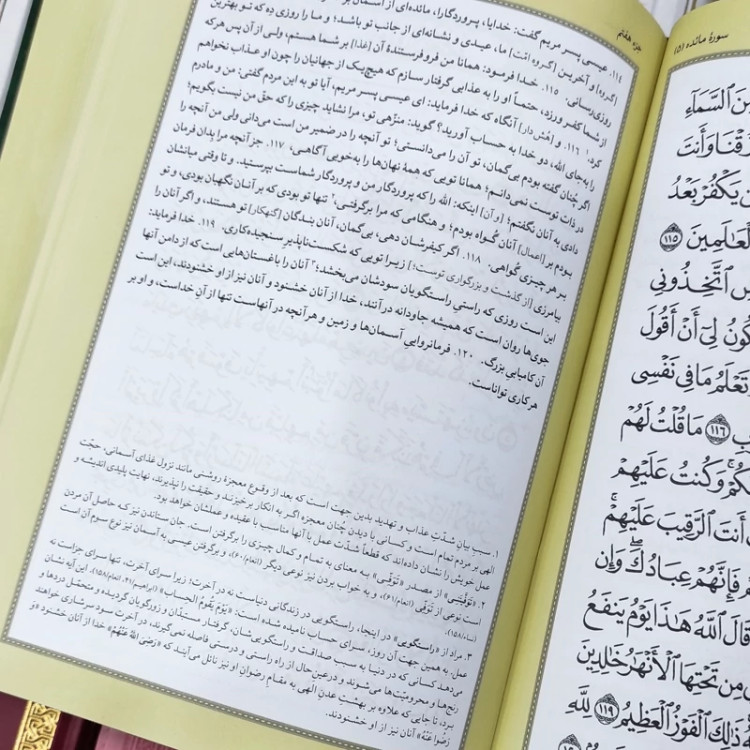 سورهٔ مائده (۵)
مِّنَ ٱلسَّمَآءِ
رۡزُقۡنَا وَأَنتَ
يَكۡفُرۡ بَعۡدُ
ٱلۡعَٰلَمِينَ ١١٥
ٱتَّخِذُونِي
يَكُونُ لِيٓ أَنۡ أَقُولَ
تَعۡلَمُ مَا فِي نَفۡسِي
١١٦ مَا قُلۡتُ لَهُمۡ
وَكُنتُ عَلَيۡهِمۡ
أَنتَ ٱلرَّقِيبَ عَلَيۡهِمۡۚ
فَإِنَّهُمۡ عِبَادُكَۖ وَإِن
قَالَ ٱللَّهُ هَٰذَا يَوۡمُ يَنفَعُ
مِن تَحۡتِهَا ٱلۡأَنۡهَٰرُ خَٰلِدِينَ
ذَٰلِكَ ٱلۡفَوۡزُ ٱلۡعَظِيمُ ١١٩ لِلَّهِ
جزء هفتم
۱۱۴. عیسی پسر مریم گفت: خدایا، پروردگارا، مائده‌ای از آسمان بر
[گروه] و آخرین [گروه امّت] ما، عیدی و نشانه‌ای از جانب تو باشد؛ و ما را روزی ده که تو بهترین
روزی‌رسانی. ۱۱۵. خدا فرمود: همانا من فروفرستندهٔ آن [غذا] بر شما هستم، ولی از آن پس هرکه
از شما کفر ورزد، حتماً او را به عذابی گرفتار سازم که هیچ‌یک از جهانیان را چون او عذاب نخواهم
کرد.¹ ۱۱۶. و [خوش دار] آنگاه که خدا فرماید: ای عیسی پسر مریم، آیا تو به این مردم گفتی: من و مادرم
را به‌جای الله، دو خدا به حساب آورید؟ گوید: منزّهی تو، مرا نشاید چیزی را که حقّ من نیست بگویم؛
اگر چنان گفته بودم بی‌گمان، تو آن را می‌دانستی؛ تو آنچه را در ضمیر من است می‌دانی ولی من آنچه را
در ذات توست نمی‌دانم؛ همانا تویی که همهٔ نهان‌ها را به‌خوبی آگاهی. ۱۱۷. جز آنچه مرا بدان فرمان
دادی به آنان نگفتم؛ [و آن] اینکه: الله را که پروردگار من و پروردگار شماست بپرستید. و تا وقتی میانشان
بودم بر [اعمال] آنان گواه بودم؛ و هنگامی که مرا برگرفتی،² تنها تو بودی که بر آنان نگهبان بودی، و تو
بر هر چیزی گواهی. ۱۱۸. اگر کیفرشان دهی، بی‌گمان، آنان بندگان [گنهکار] تو هستند، و اگر آنان را
بیامرزی [از گذشت و بزرگواری توست؛] زیرا تویی که شکست‌ناپذیر سنجیده‌کاری. ۱۱۹. خدا فرماید:
این است روزی که راستیِ راستگویان سودشان می‌بخشد؛³ آنان را باغستان‌هایی است که از دامن آنها
جوی‌ها روان است که همیشه جاودانه در آنند، خدا از آنان خشنود و آنان نیز از او خشنودند، این است
آن کامیابی بزرگ. ۱۲۰. فرمانروایی آسمان‌ها و زمین و هرآنچه در آنهاست تنها از آنِ خداست، و او بر
هر کاری تواناست.
۱. سبب بیان شدّتِ عذاب و تهدید بدین جهت است که بعد از وقوع معجزهٔ روشنی مانند نزول غذای آسمانی، حجّت
الهی بر مردم تمام است و کسانی با دیدن چنان معجزه اگر به انکار برخیزند و حقیقت را نپذیرند، نهایت پلیدی اندیشه و
عمل خویش را نشان داده‌اند که قطعاً شدّت عمل با آنها مناسب با عقیده و عملشان خواهد بود.
۲. «تَوَفَّیْتَنی» از مصدر «تَوَفّی» به معنای به تمام و کمال چیزی را برگرفتن است. جان ستاندن نیز که حاصل آن مردن
است نوعی از تَوَفّی (انعام/۶۱)، و به خواب بردن نیز نوعی دیگر (انعام/۶۰)، و برگرفتن عیسی به آسمان نیز نوع سوم آن است
۳. مراد از «راستگویی» در اینجا، راستگویی در زندگانی دنیاست نه در آخرت؛ زیرا سرای آخرت، تنها سرای جزاست نه
عمل. به همین جهت آن روز، سرای حساب نامیده شده است: «یَوْمَ یَقُومُ الْحِسابُ» (ابراهیم/۴۱، انعام/۱۵۸). این آیه نشان
می‌دهد کسانی که در دنیا به سبب صداقت و راستگویی‌شان، گرفتار مستبدّان و زورگویان گردیده و متحمّل دردها و
رنج‌ها و محرومیّت‌ها می‌شوند و درعین‌حال از راه راستی و درستی فاصله نمی‌گیرند، در آخرت سود سرشاری خواهند
برد، تا جایی که علاوه بر بهشت عدن الهی به مقام رضوان او نیز نائل می‌آیند که «رَضِیَ اللّهُ عَنْهُمْ» خدا از آنان خشنود «وَ
رَضُوا عَنْهُ» آنان نیز از او خشنودند.